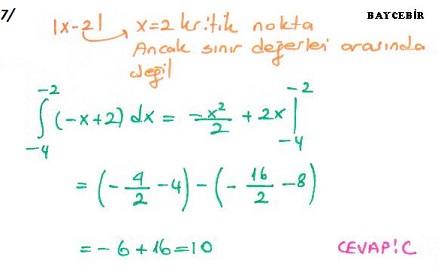 7/ |x-2| x=2 kritik nokta BAYCEBİR
Ancak sınır değerleri arasında
değil
∫_{-4}^{-2} (-x+2) dx = -x²/2 + 2x |_{-4}^{-2}
= (-4/2 -4) - (-16/2 -8)
= -6 + 16 = 10 CEVAP: C